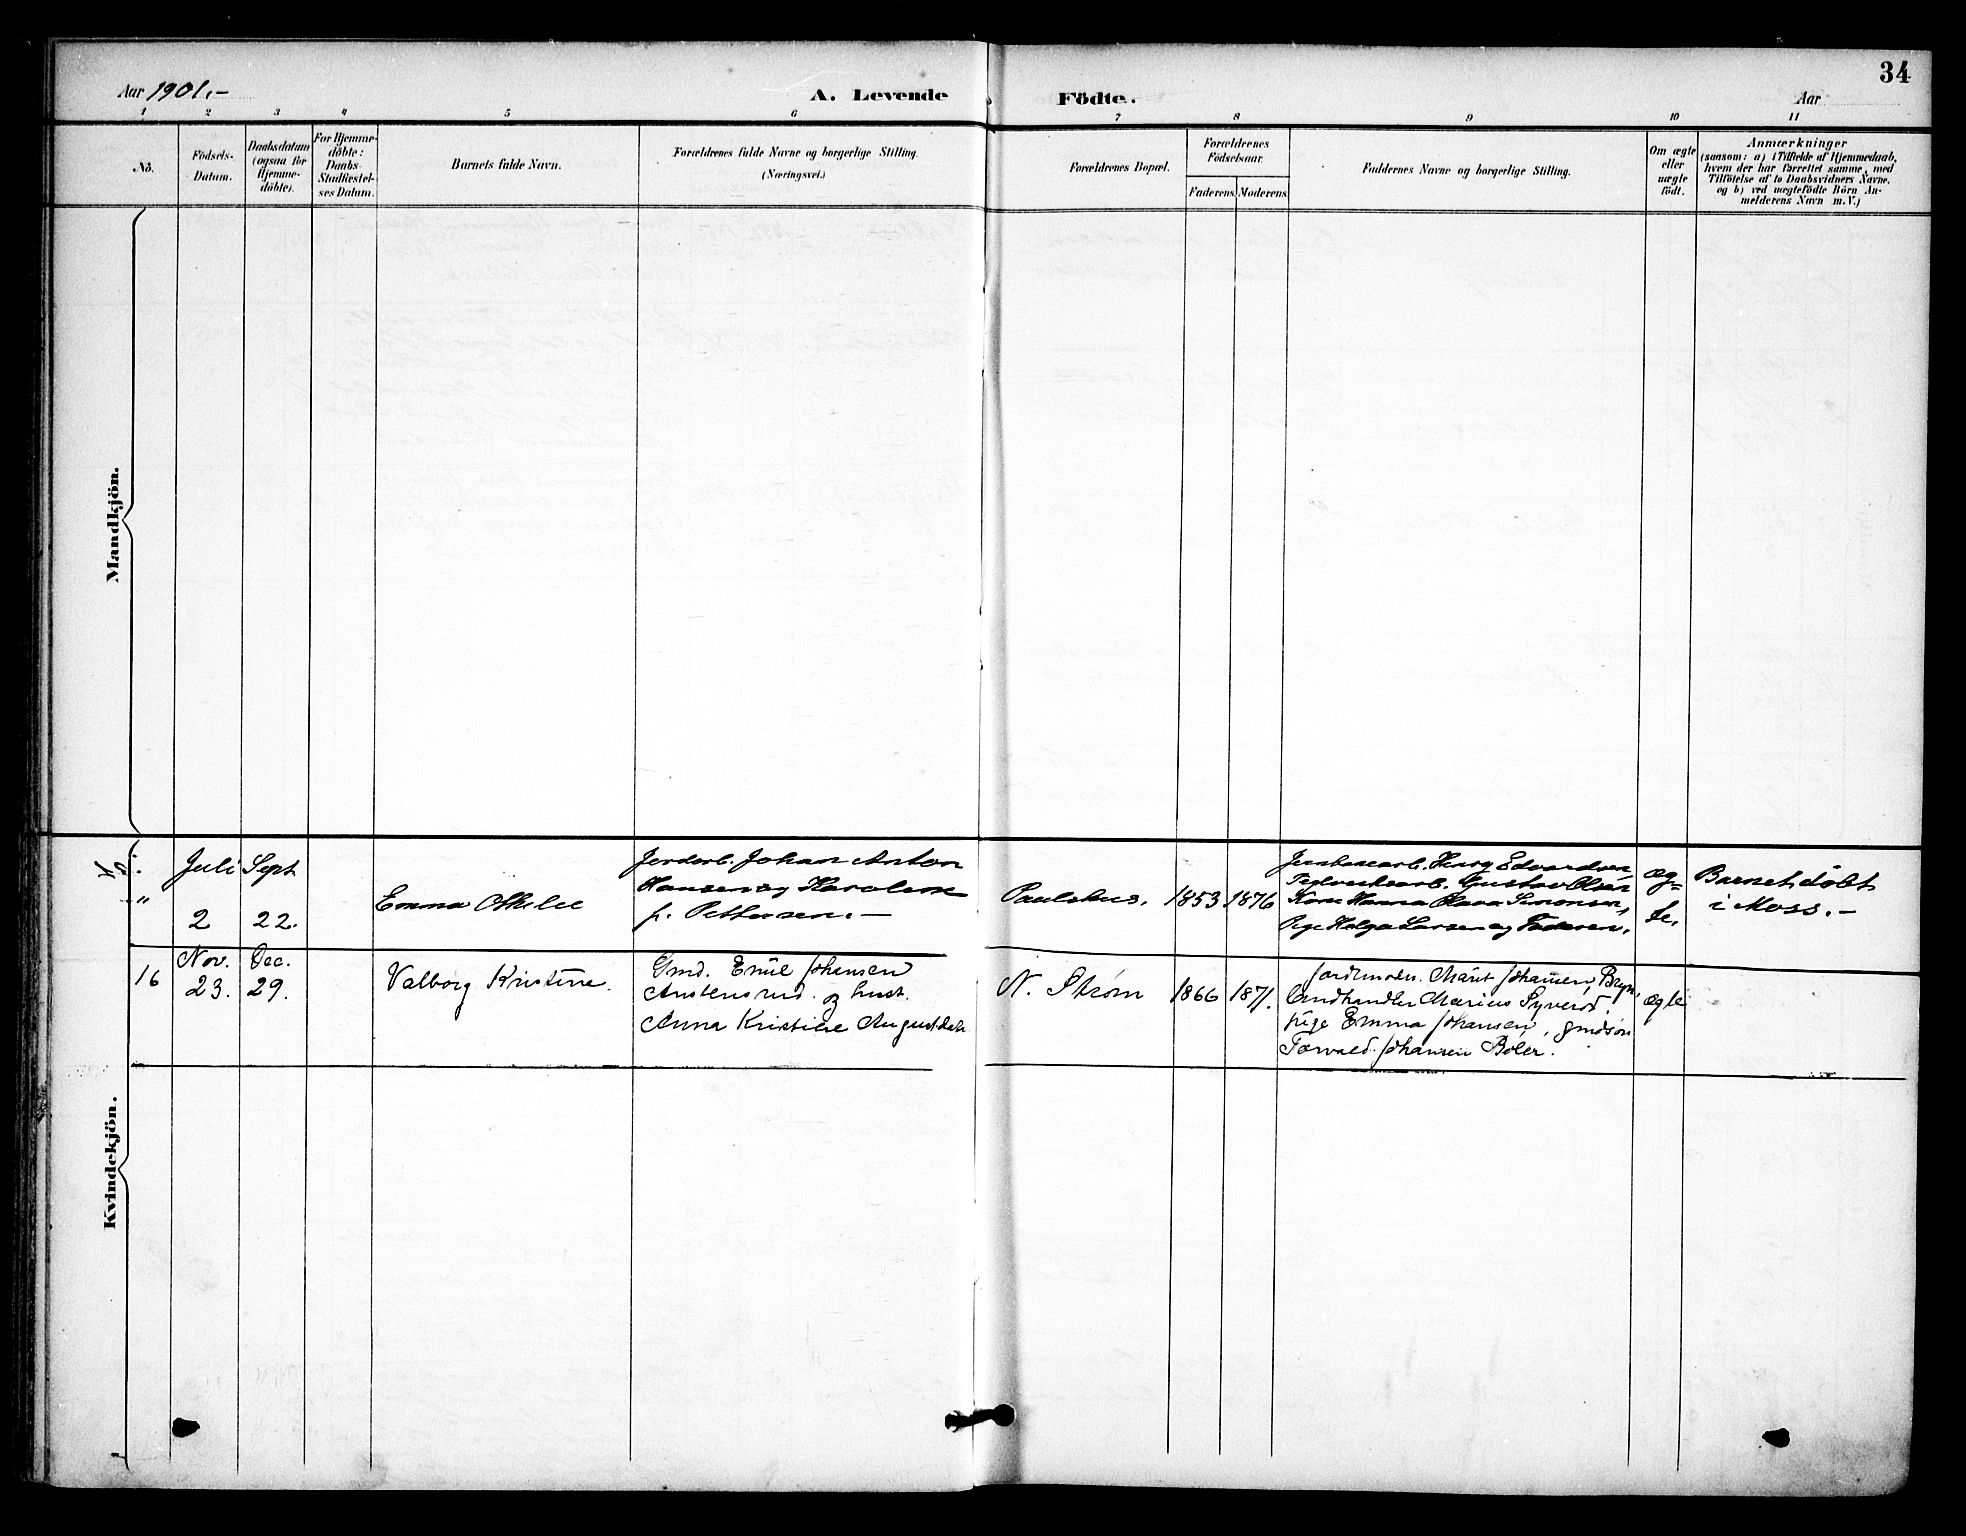 34
Aar 1901.-
A. Levende Födte.
Aar
1 2 3 4 5 6 7 8 9 10 11
No.
Födsels-
Datum.
Daabsdatum
(ogsaa for
Hjemme-
döbte).
For Hjemme-
döbte:
Daabs-
Stadfæstel-
ses Datum.
Barnets fulde Navn.
Forældrenes fulde Navne og borgerlige Stilling.
(Næringsvei.)
Forældrenes Bopæl.
Forældrenes
Födselsaar.
Faderens Moderens
Faddernes Navne og borgerlige Stilling.
Om ægte
eller
uægte
födt.
Anmærkninger
(saasom: a) i Tilfælde af Hjemmedaab,
hvem der har forrettet samme, med
Tilföielse af to Daabsvidners Navne,
og b) ved uægtefödte Börn An-
melderens Navn m. V.)
Mandkjön.
Juli
2
Sept
22.
Emma Othilie
Jordarb. Johan Anton
Hansen og Karoline
f. Pettersen. -
Paulshus.
1853
1876
Henry Edvardsen
Teglverksarb. Gustav Olsen
Kone Hanna Olava Simonsen,
Pige Helga Larsen og Faderen.
æg-
te.
Barnet döbt
i Moss. -
16
Nov.
23.
Dec.
29.
Valborg Kristine.
Gmd. Emil Johansen
Austensrud. og hust.
Anna Kristine Augustdat.
N. Strøm
1866
1871.
Jordemoder. Marit Johansen, Bryn,
landhandler Marius Syverød.
pige Emma Johansen, gmdsøn
Torvald Johansen Boler.
ægte
Kvindekjön.